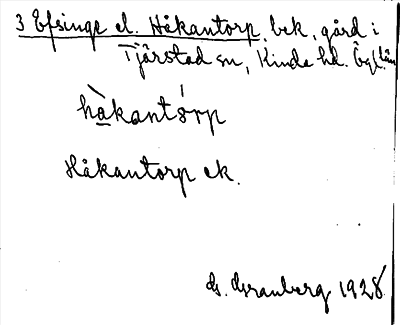 3 Efsinge el. Håkantorp, bek. gård i
Tjärstad sn, Kinda hd. Ögl. län
hàkantórp
Håkantorp ek.
G. Granberg 1928